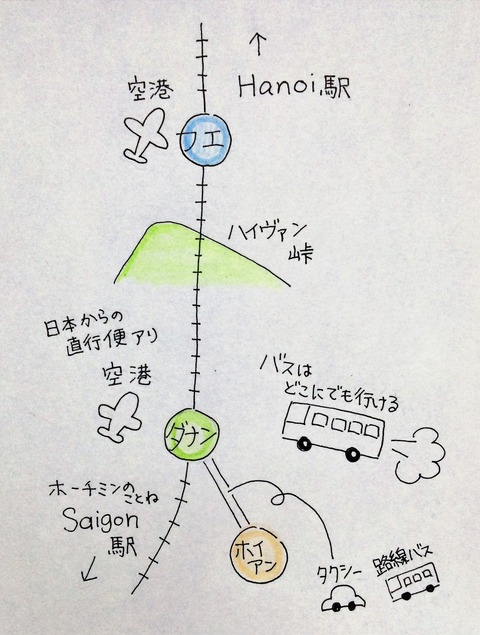 Hanoi駅
空港
フエ
ハイヴァン
峠
日本からの
直行便アリ
空港
ダナン
バスは
どこにでも行ける
ホーチミンの
ことね
Saigon
駅
ホイ
アン
タクシー
路線バス